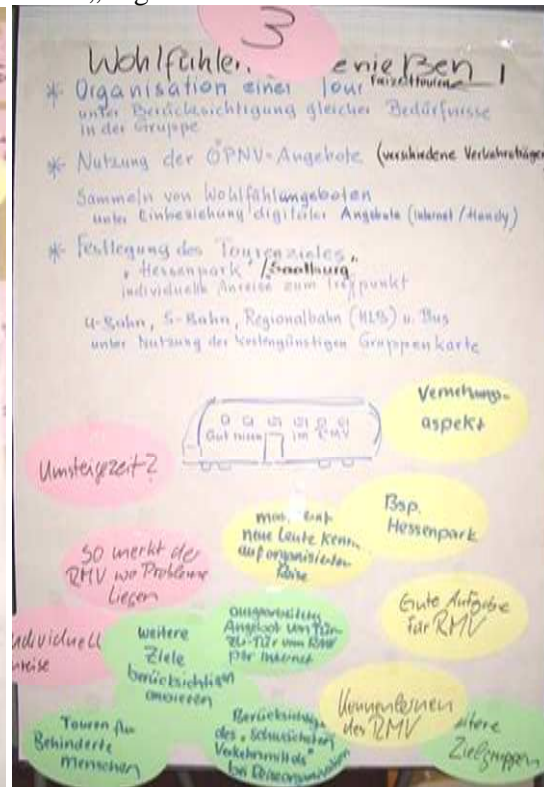 3
Wohlfühlen enießen!
* Organisation einer Tour Freizeittouren
unter Berücksichtigung gleicher Bedürfnisse
in der Gruppe
* Nutzung der ÖPNV-Angebote (verschiedene Verkehrsträger
Sammeln von Wohlfühlangeboten
unter Einbeziehung digitaler Angebote (Internet/Handy)
* Festlegung des Tourenzieles
"Hessenpark"/Saalburg
individuelle Anreise zum Treffpunkt
U-Bahn, S-Bahn, Regionalbahn (HLB) u. Bus
unter Nutzung der kostengünstigen Gruppenkarte
Gut reisen im RMV
Vernetzungs-
aspekt
Umsteigezeit?
man lernt
neue Leute kennen
auf organisierter
Reise
Bsp.
Hessenpark
so merkt der
RMV wo Probleme
liegen
Gute Aufgabe
für RMV
ndividuell
nreise
weitere
Ziele
berücksichtigen
Angebot von Tür-
zu-Tür vom RMV
per Internet
Kennenlernen
des RMV
Touren für
Behinderte
Menschen
des "schwächsten
Verkehrsmittels"
bei Reiseorganisation
itere
Zielgruppen